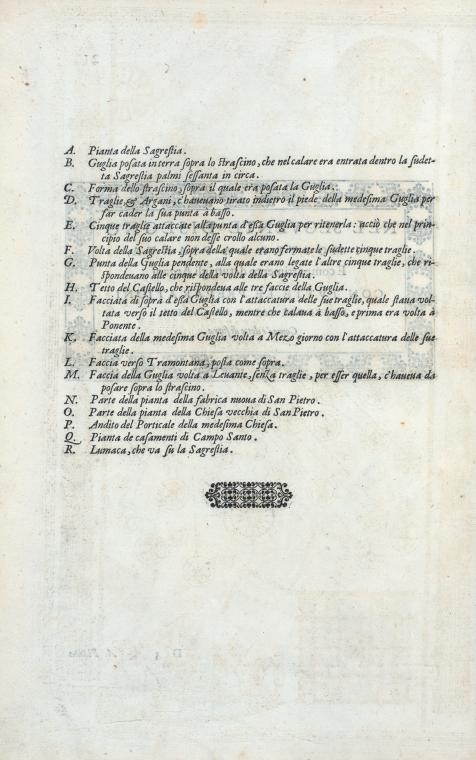 A. Pianta della Sagreſtia.
B. Guglia poſata in terra ſopra lo ſtraſcino, che nel calare era entrata dentro la ſudet-
ta Sagreſtia palmi ſeſſanta in circa.
C. Forma dello ſtraſcino, ſopra il quale era poſata la Guglia.
D. Traglie, & Argani, c'haueuano tirato indietro il piede della medeſima Guglia per
far cader la ſua punta à baſſo.
E. Cinque traglie attaccate alla punta d'eſſa Guglia per ritenerla: acciò che nel prin-
cipio del ſuo calare non deſſe crollo alcuno.
F. Volta della Sagreſtia, ſopra della quale erano fermate le ſudette cinque traglie.
G. Punta della Guglia pendente, alla quale erano legate l'altre cinque traglie, che ri-
ſpondeuano alle cinque della volta della Sagreſtia.
H. Tetto del Caſtello, che riſpondeua alle tre faccie della Guglia.
I. Facciata di ſopra d'eſſa Guglia con l'attaccatura delle ſue traglie, quale ſtaua vol-
tata verſo il tetto del Caſtello, mentre che calaua à baſſo, e prima era volta à
Ponente.
K. Facciata della medeſima Guglia volta a Mezo giorno con l'attaccatura delle ſue
traglie.
L. Faccia verſo Tramontana, poſta come ſopra.
M. Faccia della Guglia volta à Leuante, ſenza traglie, per eſſer quella, c'haueua da
poſare ſopra lo ſtraſcino.
N. Parte della pianta della fabrica nuoua di San Pietro.
O. Parte della pianta della Chieſa vecchia di San Pietro.
P. Andito del Porticale della medeſima Chieſa.
Q. Pianta de caſamenti di Campo Santo.
R. Lumaca, che va ſu la Sagreſtia.